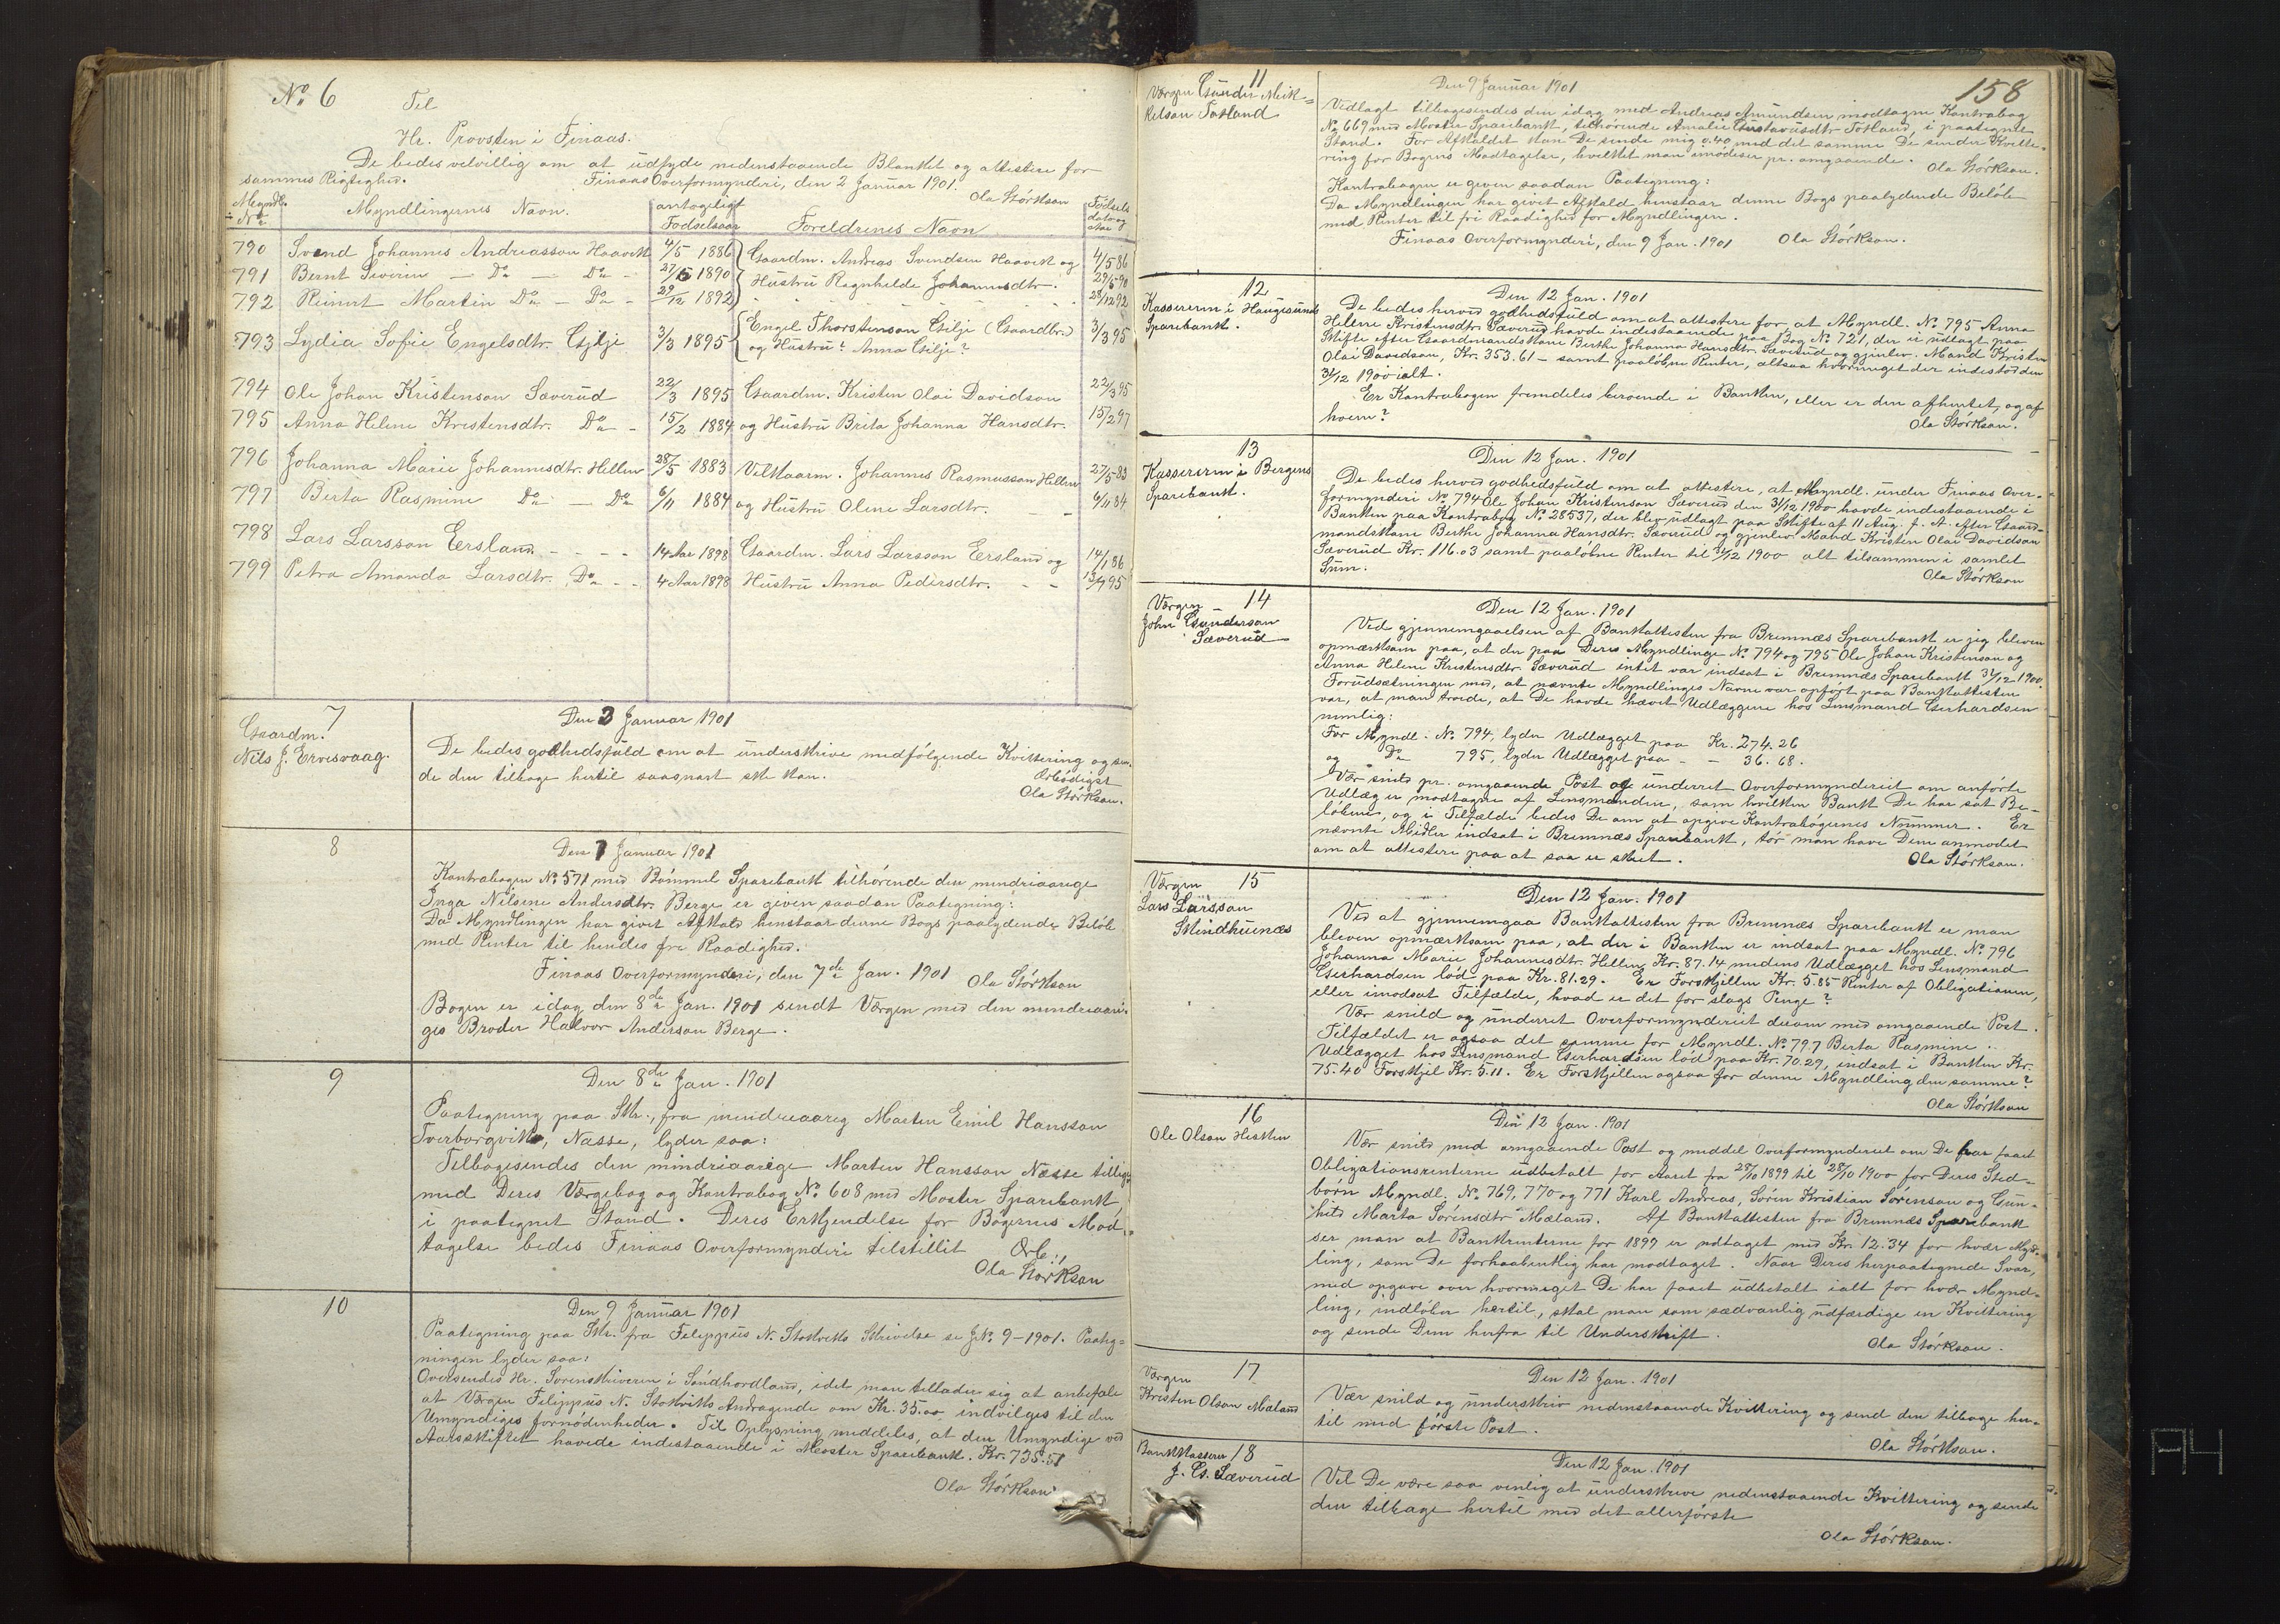 No 6
Til
Hr. Provsten i Finaas.
De bedes velvillig om at udfyde nedenstaaende Blanket og attestere for
sammes Rigtighed. Finaas Overformynderi, den 2 Januar 1901.
Ola Störkson
Myndl. No Myndlingernes Navn. antageligt Fodselsaar Foreldrenes Navn Födsels dato og Aar
790 Svend Johannes Andreasson Haavik 4/5 1886 Gaardm. Andreas Svendsen Haavik og 4/5 86
791 Bernt Severin — Do — Do - 27/5 1890 Hustru Ragnhilde Johannesdtr. 29/5 90
792 Reinert Martin Do — Do - 29/12 1892 28/12 92
793 Lydia Sofie Engelsdtr. Gjilje 3/3 1895 Engel Thorstenson Gilje (Gaardbr.) 3/3 95
og Hustru? Anna Gilje?
794 Ole Johan Kristenson Sæverud 22/3 1895 Gaardm. Kristen Olai Davidson 22/3 95
795 Anna Helene Kristensdtr. Do - 15/2 1884 og Hustru Brita Johanna Hansdtr. 15/2 97
796 Johanna Marie Johannesdtr. Hellen 28/5 1883 Vilkaarm. Johannes Rasmusson Hellen 27/5 83
797 Berta Rasmine Do — Do 6/11 1884 og Hustru Oline Larsdtr. 6/11 84
798 Lars Larsson Eersland - - - - 14 Aar 1898 Gaardm. Lars Larsson Eersland og 14/1 86
799 Petra Amanda Larsdtr. Do - - 4 Aar 1898 Hustru Anna Pedersdtr. - - 13/7 95
7
Gaardm.
Nils J. Ervesvaag.
Den 3 Januar 1901
De bedes godhedsfuld om at underskrive medfölgende Kvittering og sen-
de den tilbage hertil saasnart ske kan.
Ærbödigst
Ola Störkson.
8
Den 7 Januar 1901
Kontrabogen No 571 med Bömmel Sparebank tilhörende den mindreaarige
Inga Nilsine Andersdtr. Berge er given saadan Paategning:
Da Myndlingen har givet Afkald henstaar denne Bogs paalydende Belöb
med Renter til hendes fri Raadighed.
Finaas Overformynderi, den 7de Jan. 1901 Ola Störkson
Bogen er idag den 8de Jan. 1901 sendt Værgen med den mindreaari-
ges Broder Halvor Anderson Berge.
9
Den 8de Jan. 1901
Paategning paa Skr., fra mindreaarig Martin Emil Hansson
Tverborgvik, Næsse, lyder saa:
Tilbagesendes den mindreaarige Martin Hansson Næsse tillige
med Deres Værgebog og Kontrabog No 608 med Moster Sparebank
i paategnet Stand. Deres Erkjendelse for Bögernes Mod-
tagelse bedes Finaas Overformynderi tilstillet Ærb.
Ola Störkson
10
Den 9 Januar 1901
Paategning paa Skr. fra Felippus N. Stokviks Skrivelse se J No. 9-1901. Paateg-
ningen lyder saa:
Oversendes Hr. Sorenskriveren i Söndhordland, idet man tillader sig at anbefale
at Værgen Filippus N. Stokviks Andragende om Kr. 35.00 indvilges til den
Umyndiges fornödenheder. Til Oplysning meddeles, at den Umyndige ved
Aarsskiftet havede indestaaende i Moster Sparebank. Kr. 735.51
Ola Störkson
158
11
Værgen Gunder Mik-
kelson Totland
Den 9 Januar 1901
Vedlagt tilbagesendes den idag med Andreas Amundsen modtagne Kontrabog
No 669 med Moster Sparebank, tilhörende Amalie Gustavusdtr Totland, i paategnet
Stand. For Afkaldet kan De sende mig 0.40 med det samme De sender Kvitte-
ring for Bogens Modtagelse, hvilket man imödeser pr. omgaaende.
Ola Störkson.
Kontrabogen er given saadan Paategning:
Da Myndlingen har givet Afkald henstaar denne Bogs paalydende Belöb
med Renter til fri Raadighed for Myndlingen.
Finaas Overformynderi, den 9 Jan. 1901 Ola Störkson.
12
Kassereren i Haugesunds
Sparebank.
Den 12 Jan. 1901
De bedes herved godhedsfuld om at attestere for at Myndl. No 795 Anna
Helene Kristensdtr. Sæverud havde indestaaende paa Bog No 721, der er udlagt paa
Skifte efter Gaardmandskone Berthe Johanna Hansdtr. Sæverud og gjenlev. Mand Kristen
Olai Davidson, Kr. 353.61 - samt paalöbne Renter, altsaa hvormeget der indestod den
31/12 1900 ialt.
Er Kontrabogen fremdeles beroende i Banken, eller er den afhentet, og af
hvem?
Ola Störkson.
13
Kassereren i Bergens
Sparebank.
Den 12 Jan. 1901
De bedes herved godhedsfuld om at attestere, at Myndl. under Finaas Over-
formynderi No 794 Ole Johan Kristenson Sæverud den 31/12 1900 havde indestaaende i
Banken paa Kontrabog No 28537, der blev udlagt paa Skifte af 11 Aug. f. A. efter Gaard-
mandskone Berthe Johanna Hansdtr. Sæverud og gjenlev. Mand Kristen Olai Davidson
Sæverud Kr. 116.03 samt paalöbne Renter til 31/12 1900 alt tilsammen i samlet
Sum.
Ola Störkson
14
Værgen
John Gunderson
Sæverud
Den 12 Jan. 1901
Ved gjennemgaaelsen af Bankattesten fra Bremnæs Sparebank er jeg bleven
opmærksom paa, at der paa Deres Myndlinge No. 794 og 795 Ole Johan Kristenson og
Anna Helene Kristensdtr. Sæverud intet var indsat i Bremnæs Sparebank 31/12 1900.
Forudsætningen med, at nævnte Myndlinges Navne var opfört paa Bankattesten
var, at man troede, at De havde hævet Udlæggene hos Lensmand Gerhardsen
nemlig:
For Myndl. No. 794, lyder Udlægget paa Kr. 274.26
og Do 795, lyder Udlægget paa - - 36.68.
Vær snild pr. omgaaende Post og underret Overformynderiet om anförte
Udlæg er modtagne af Lensmanden, som hvilken Bank De har sat Be-
löbene, og i Tilfælde bedes De om at opgive Kontrabögernes Nummer. Er
nævnte Midler indsat i Bremnæs Sparebank, tör man have Dem anmodet
om at attestere paa at saa er skeet.
Ola Störkson.
15
Værgen
Lars Larsson
Skindhuenæs
Den 12 Jan. 1901
Ved at gjennemgaa Bankattesten fra Bremnæs Sparebank er man
bleven opmærksom paa, at der i Banken er indsat paa Myndl. No. 796
Johanna Marie Johannesdtr. Hellen Kr. 87.14, medens Udlægget hos Lensmand
Gerhardsen löd paa Kr. 81.29. Er Forskjellen Kr. 5.85 Renter af Obligationen,
eller imodsat Tilfælde, hvad er det for slags Penge?
Vær snild og underret Overformynderiet derom med omgaaende Post.
Tilfældet er ogsaa det samme for Myndl. No. 797 Berta Rasmine.
Udlægget hos Lensmand Gerhardsen löd paa Kr. 70.29, indsat i Banken Kr.
75.40 Forskjel Kr. 5.11. Er Forskjellen ogsaa for denne Myndling den samme?
Ola Störkson
16
Ole Olson Hesken
Den 12 Jan. 1901
Vær snild med omgaaende Post og meddel Overformynderiet om De har faaet
Obligationsrenterne udbetalt for Aaret fra 28/10 1899 til 28/10 1900 for Deres Sted-
börn Myndl. No. 769, 770 og 771 Karl Andreas, Sören Kristian Sörenson og Gun-
hild Marta Sörensdtr Mæland. Af Bankattesten fra Bremnæs Sparebank
ser man at Bankrenterne for 1899 er udtaget med Kr. 12.34 for hvær Mynd-
ling, som De forhaabentlig har modtaget. Naar Deres herpaategnede Svar,
med opgave over hvormeget De har faaet udbetalt ialt for hvær Mynd-
ling, indlöber hertil, skal man som sædvanlig udfærdige en Kvittering
og sende Dem herfra til Underskrift.
Ola Störkson.
17
Værgen
Kristen Olson Mæland
Den 12 Jan. 1901
Vær snild og underskriv nedenstaaende Kvittering og send den tilbage her-
til med förste Post.
Ola Störkson.
18
Bankkasserer
J. G. Sæverud
Den 12 Jan. 1901
Vil De være saa venlig at underskrive nedenstaaende Kvittering og sende
den tilbage hertil med det allerförste
Ola Störkson.